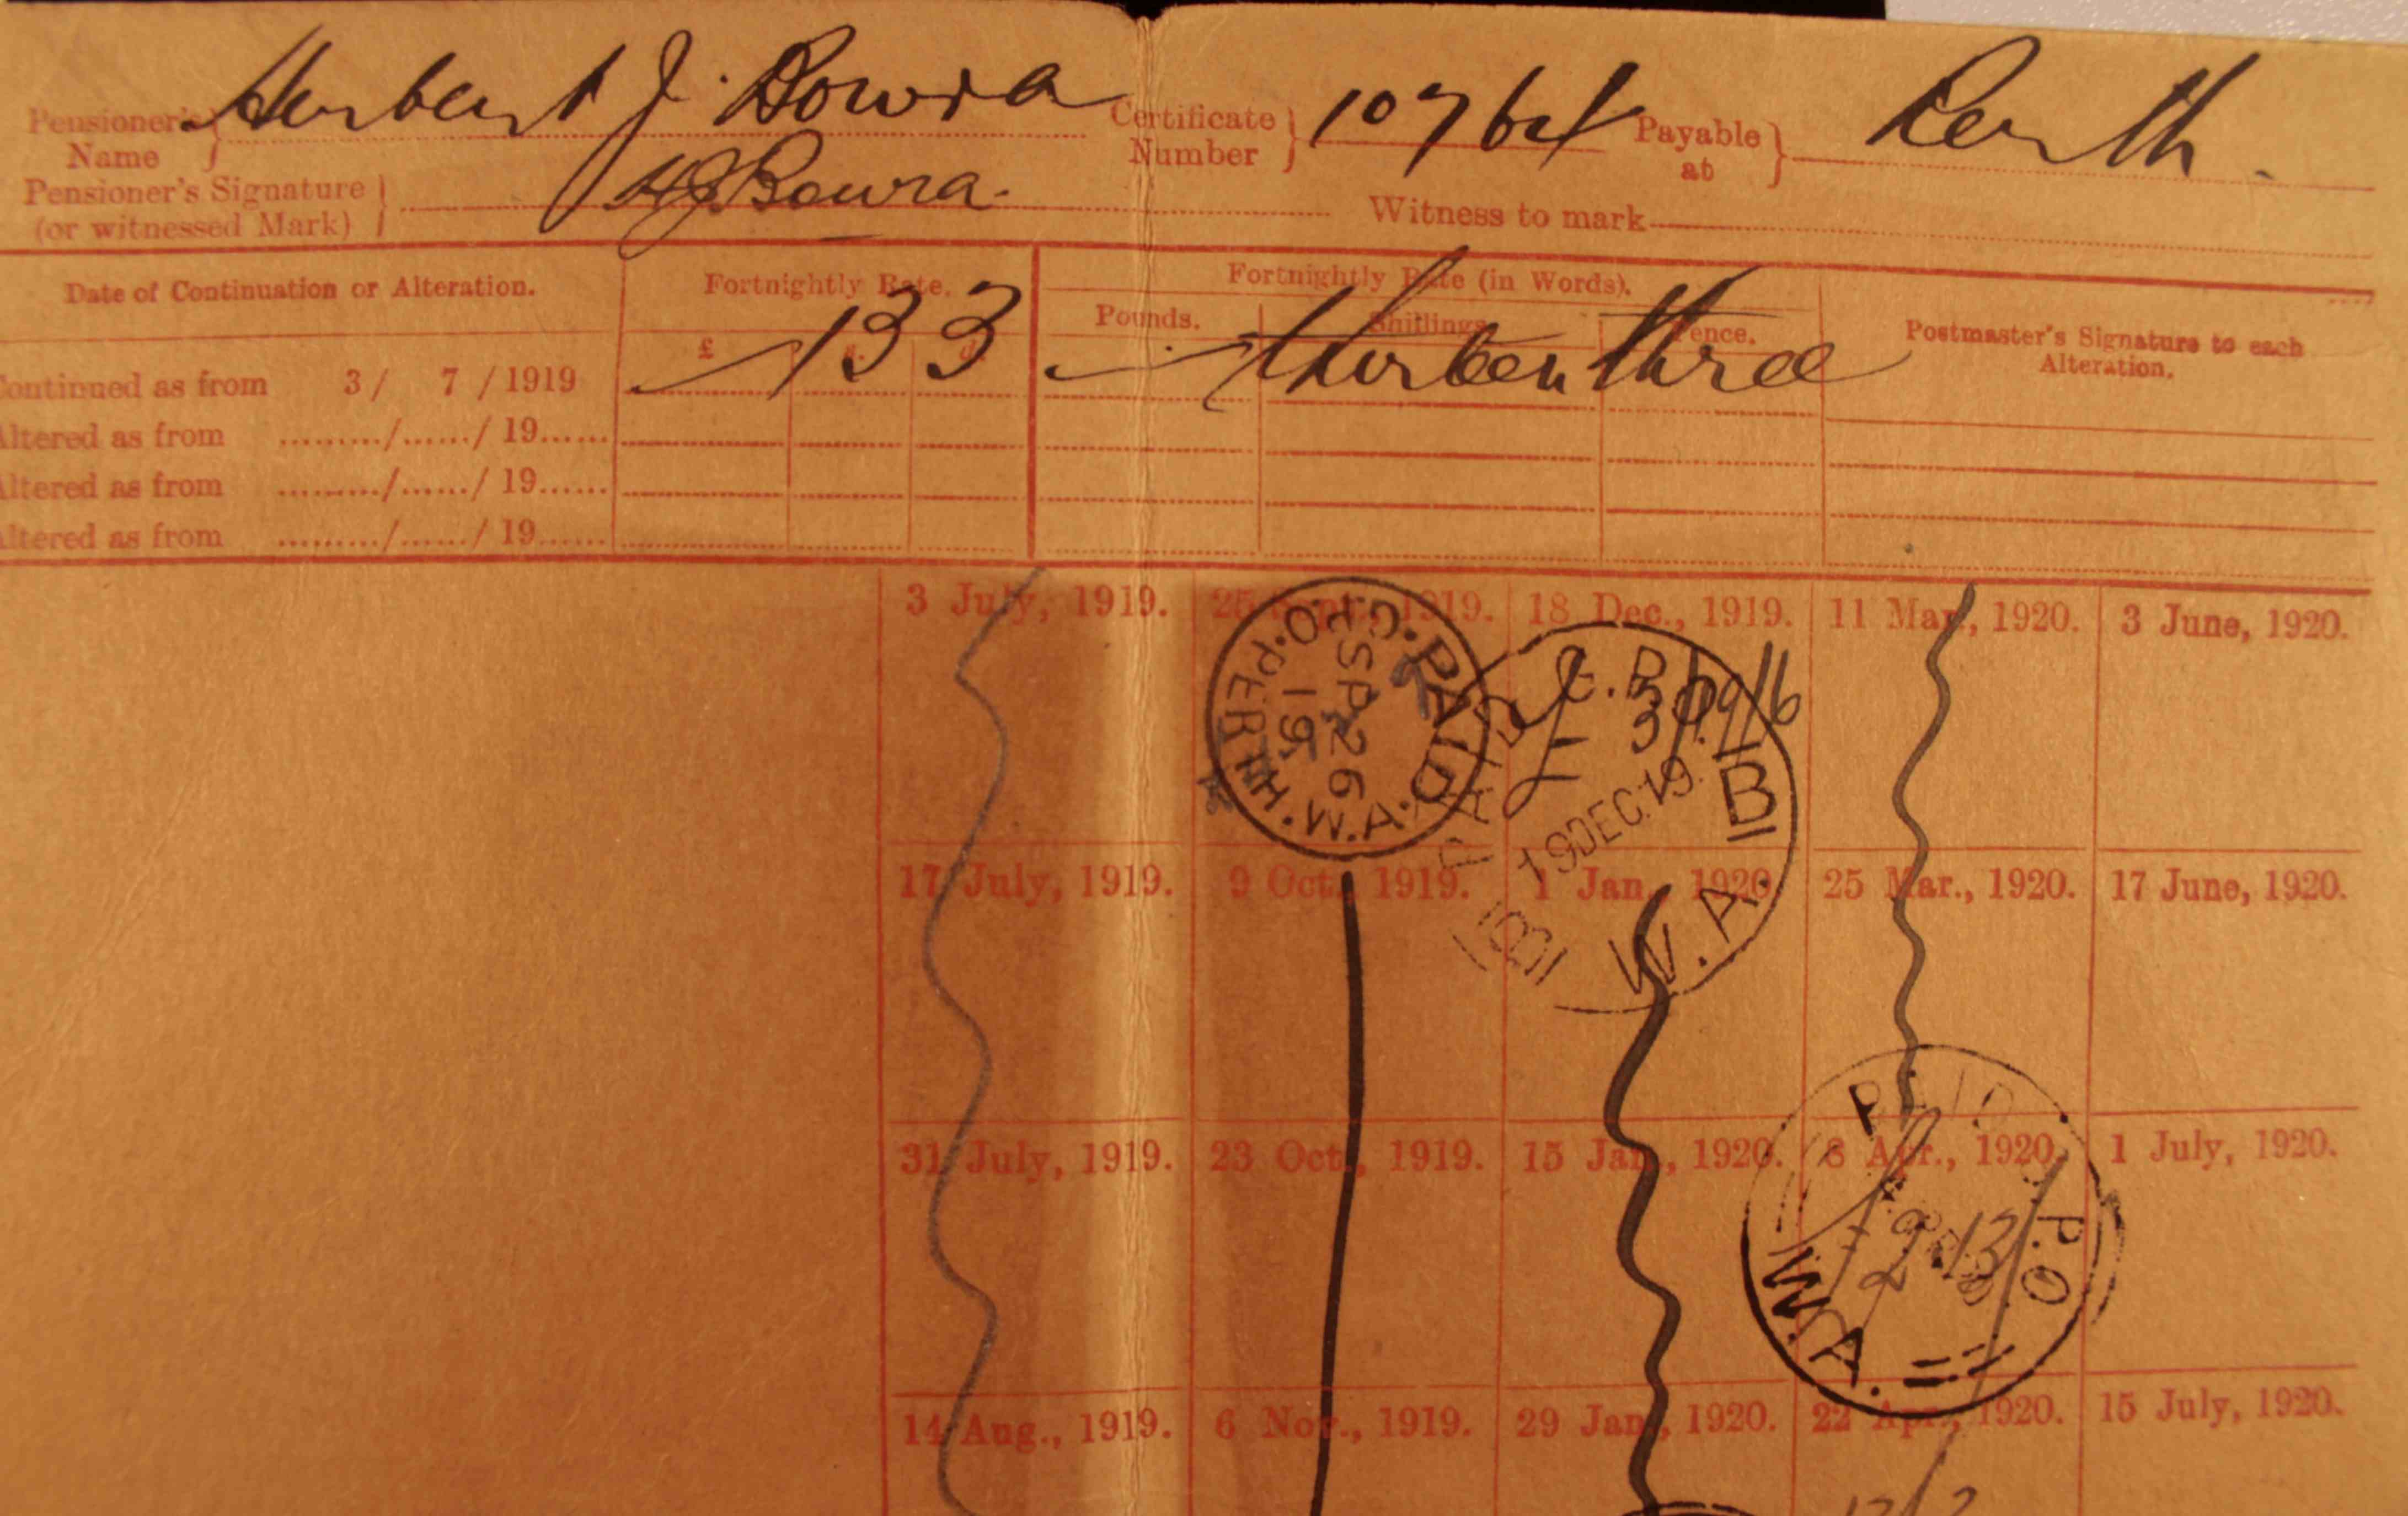 Pensioner's Name } Herbert J. Bowra Certificate Number } 10764 Payable at } Perth.
Pensioner's Signature (or witnessed Mark) } HJBowra. Witness to mark
Date of Continuation or Alteration. Fortnightly Rate. Fortnightly Rate (in Words). Postmaster's Signature to each Alteration.
£ s. d. Pounds. Shillings. Pence.
Continued as from 3 / 7 / 1919 13 3 thirteen three
Altered as from ........./....../ 19......
Altered as from ........./....../ 19......
Altered as from ........./....../ 19......
3 July, 1919. 25 Sept., 1919. 18 Dec., 1919. 11 Mar., 1920. 3 June, 1920.
G.P.O. PERTH. W.A. PAID
SP 26
19
PAID G.P.O.
B
19 DEC. 19.
W.A.
B
17 July, 1919. 9 Oct., 1919. 1 Jan., 1920. 25 Mar., 1920. 17 June, 1920.
31 July, 1919. 23 Oct., 1919. 15 Jan., 1920. 8 Apr., 1920. 1 July, 1920.
PAID
P.O
W.A.
14 Aug., 1919. 6 Nov., 1919. 29 Jan., 1920. 22 Apr., 1920. 15 July, 1920.